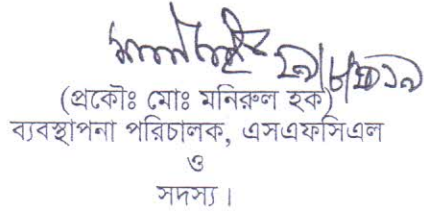 (প্রকৌঃ মোঃ মনিরুল হক)
ব্যবস্থাপনা পরিচালক, এসএফসিএল
ও
সদস্য।